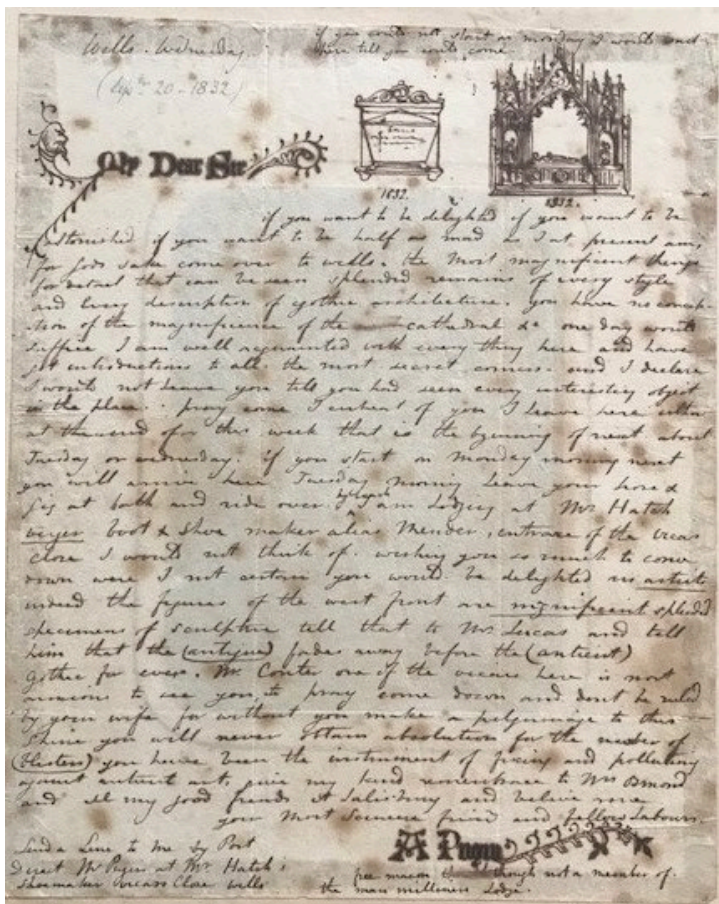 if you could not start on monday I would wait
here till you could come
Wells. Wednesday.
(Sepr 20 - 1832)
My Dear Sir
1832.
1832.
if you want to be delighted if you want to be
astonished if you want to be half as mad as I at present am,
for gods sake come over to wells. the most magnificent things
for detail that can be seen splendid remains of every style
and every description of gothic architecture. you have no concep-
tion of the magnificence of the cathedral &c one day would
suffice I am well acquainted with every thing here and have
got introductions to all the most secret corners and I declare
I would not leave you till you had seen every interesting object
in the place. pray come I entreat of you I leave here
at the end of this week that is the begining of next about
Tuesday or wednesday. if you start on Monday morning next
you will arrive here Tuesday morning leave your horse &
gig at bath and ride over I am Lodging at Mr Hatch
boot & shoe maker alias Mender, entrance of the vicars
close I would not think of wishing you so much to come
down were I not certain you would be delighted as artist
indeed the figures of the west front are magnificent splendid
specimens of sculpture tell that to Mr Lucas and tell
him that the (antique) fades away before the (antient)
gothic for ever. Mr one of the vicars here is most
anxious to see you so pray come down and dont be ruled
by your wife for without you make a pilgrimage to this
shrine you will never obtain absolution for the number of
you have been the instrument of fixing and polluting
against antient art, give my kind remembrance to Mrs Osmond
and all my good friends at Salisbury and believe me
your Most Sincere friend and fellow Labourer
A Pugin
Send a Line to me by Post
Direct Mr Pugin at Mr Hatch's
Shoemaker vicars Close wells
free mason though not a member of
the man milliners Lodge.